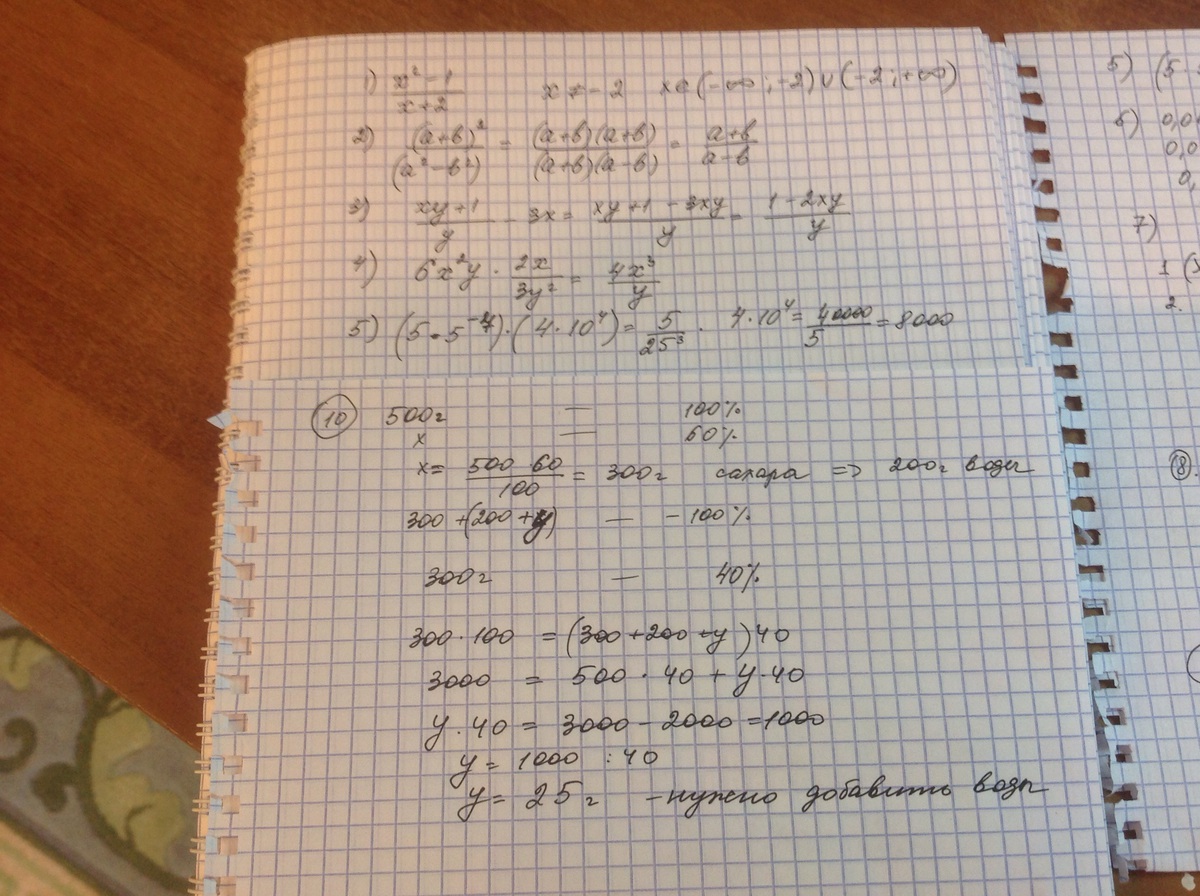 1) x²-1/x+2 x ≠ -2 x∈(-∞;-2)∪(-2;+∞)
2) (a+b)²/(a²-b²) = (a+b)(a+b)/(a+b)(a-b) = a+b/a-b
3) xy+1/y - 3x = xy+1-3xy/y = 1-2xy/y
4) 6x²y · 2x/3y² = 4x³/y
5) (5·5⁻⁴)·(4·10⁴) = 5/25³ · 4·10⁴ = 40000/5 = 8000
10 500г — 100%
x — 60%
x = 500 60/100 = 300г сахара => 200г воды
300 + (200 + y) — -100%
300г — 40%
300·100 = (300+200+y)40
3000 = 500·40 + y·40
y·40 = 3000 - 2000 = 1000
y = 1000 : 40
y = 25г - нужно добавить воды
5) (5
6) 0,0
0,0
0,
7)
1 (
2.
18.